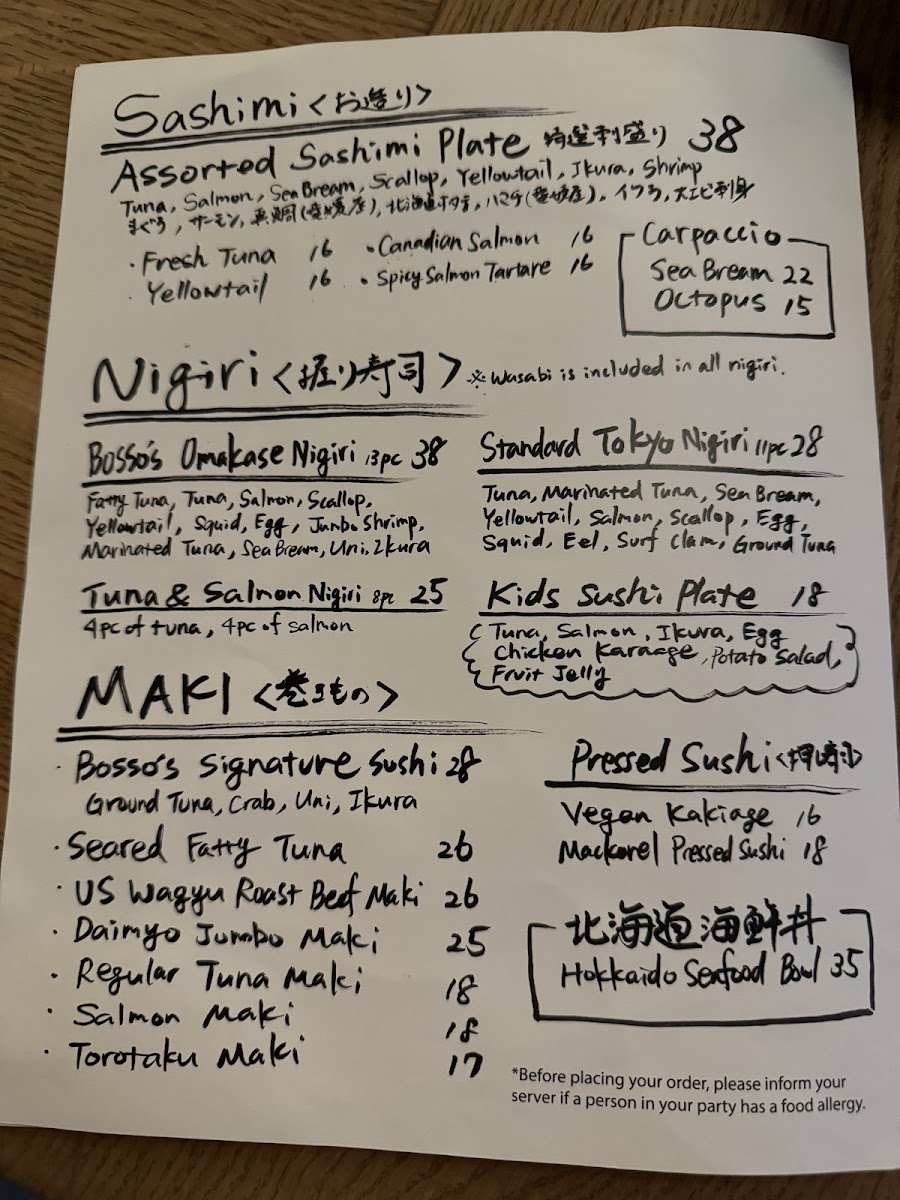 Sashimi <お造り>
Assorted Sashimi Plate 特選刺盛り 38
Tuna, Salmon, Sea Bream, Scallop, Yellowtail, Ikura, Shrimp
まぐろ, サーモン, 真鯛(愛媛産), 北海道ホタテ, ハマチ(愛媛産), イクラ, 大エビ刺身
・Fresh Tuna 16
・Yellowtail 16
・Canadian Salmon 16
・Spicy Salmon Tartare 16
Carpaccio
Sea Bream 22
Octopus 15
Nigiri <握り寿司> ※Wasabi is included in all nigiri.
Bosso's Omakase Nigiri 13pc 38
Fatty Tuna, Tuna, Salmon, Scallop,
Yellowtail, Squid, Egg, Jumbo Shrimp,
Marinated Tuna, Sea Bream, Uni, Ikura
Standard Tokyo Nigiri 11pc 28
Tuna, Marinated Tuna, Sea Bream,
Yellowtail, Salmon, Scallop, Egg,
Squid, Eel, Surf Clam, Ground Tuna
Tuna & Salmon Nigiri 8pc 25
4pc of tuna, 4pc of salmon
Kids Sushi Plate 18
Tuna, Salmon, Ikura, Egg
Chicken Karaage, Potato Salad,
Fruit Jelly
MAKI <巻きもの>
・Bosso's Signature Sushi 28
Ground Tuna, Crab, Uni, Ikura
・Seared Fatty Tuna 26
・US Wagyu Roast Beef Maki 26
・Daimyo Jumbo Maki 25
・Regular Tuna Maki 18
・Salmon Maki 18
・Torotaku Maki 17
Pressed Sushi <押寿司>
Vegan Kakiage 16
Mackerel Pressed Sushi 18
北海道海鮮丼
Hokkaido Seafood Bowl 35
*Before placing your order, please inform your
server if a person in your party has a food allergy.